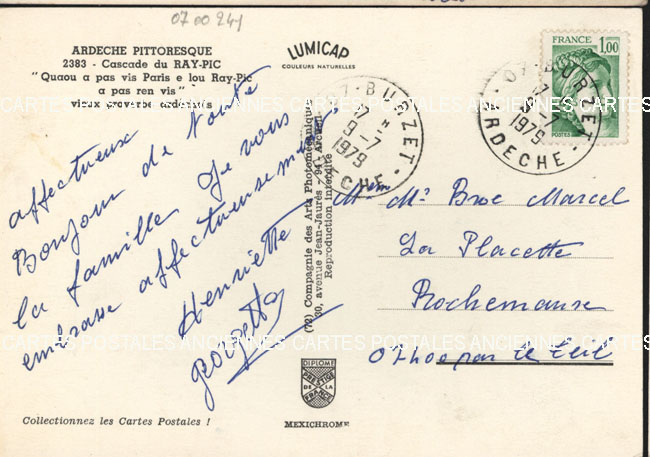 07 00 241
ARDECHE PITTORESQUE
2383 - Cascade du RAY-PIC
"Quaou a pas vis Paris e lou Ray-Pic
a pas ren vis"
vieux proverbe ardéchois
LUMICAP
COULEURS NATURELLES
FRANCE 1,00
POSTES
07-BURZET
17 H
9-7
1979
ARDECHE
07-BURZET
17 H
9-7
1979
ARDECHE
affectueux
Bonjour de toute
la famille Je vous
embrasse affectueusement
Henriette
Georgette
(72) Compagnie des Arts Photomécaniques
30, avenue Jean-Jaurès - 94 - Arcueil
Reproduction interdite
Mem Mr Broc Marcel
La Placette
Rochemaure
07400 par le Teil
DIPLOME
PRESTIGE
DE LA
FRANCE
MEXICHROME
Collectionnez les Cartes Postales !
CARTES POSTALES ANCIENNES CARTES POSTALES ANCIENNES
CARTES POSTALES ANCIENNES CARTES POSTALES ANCIENNES